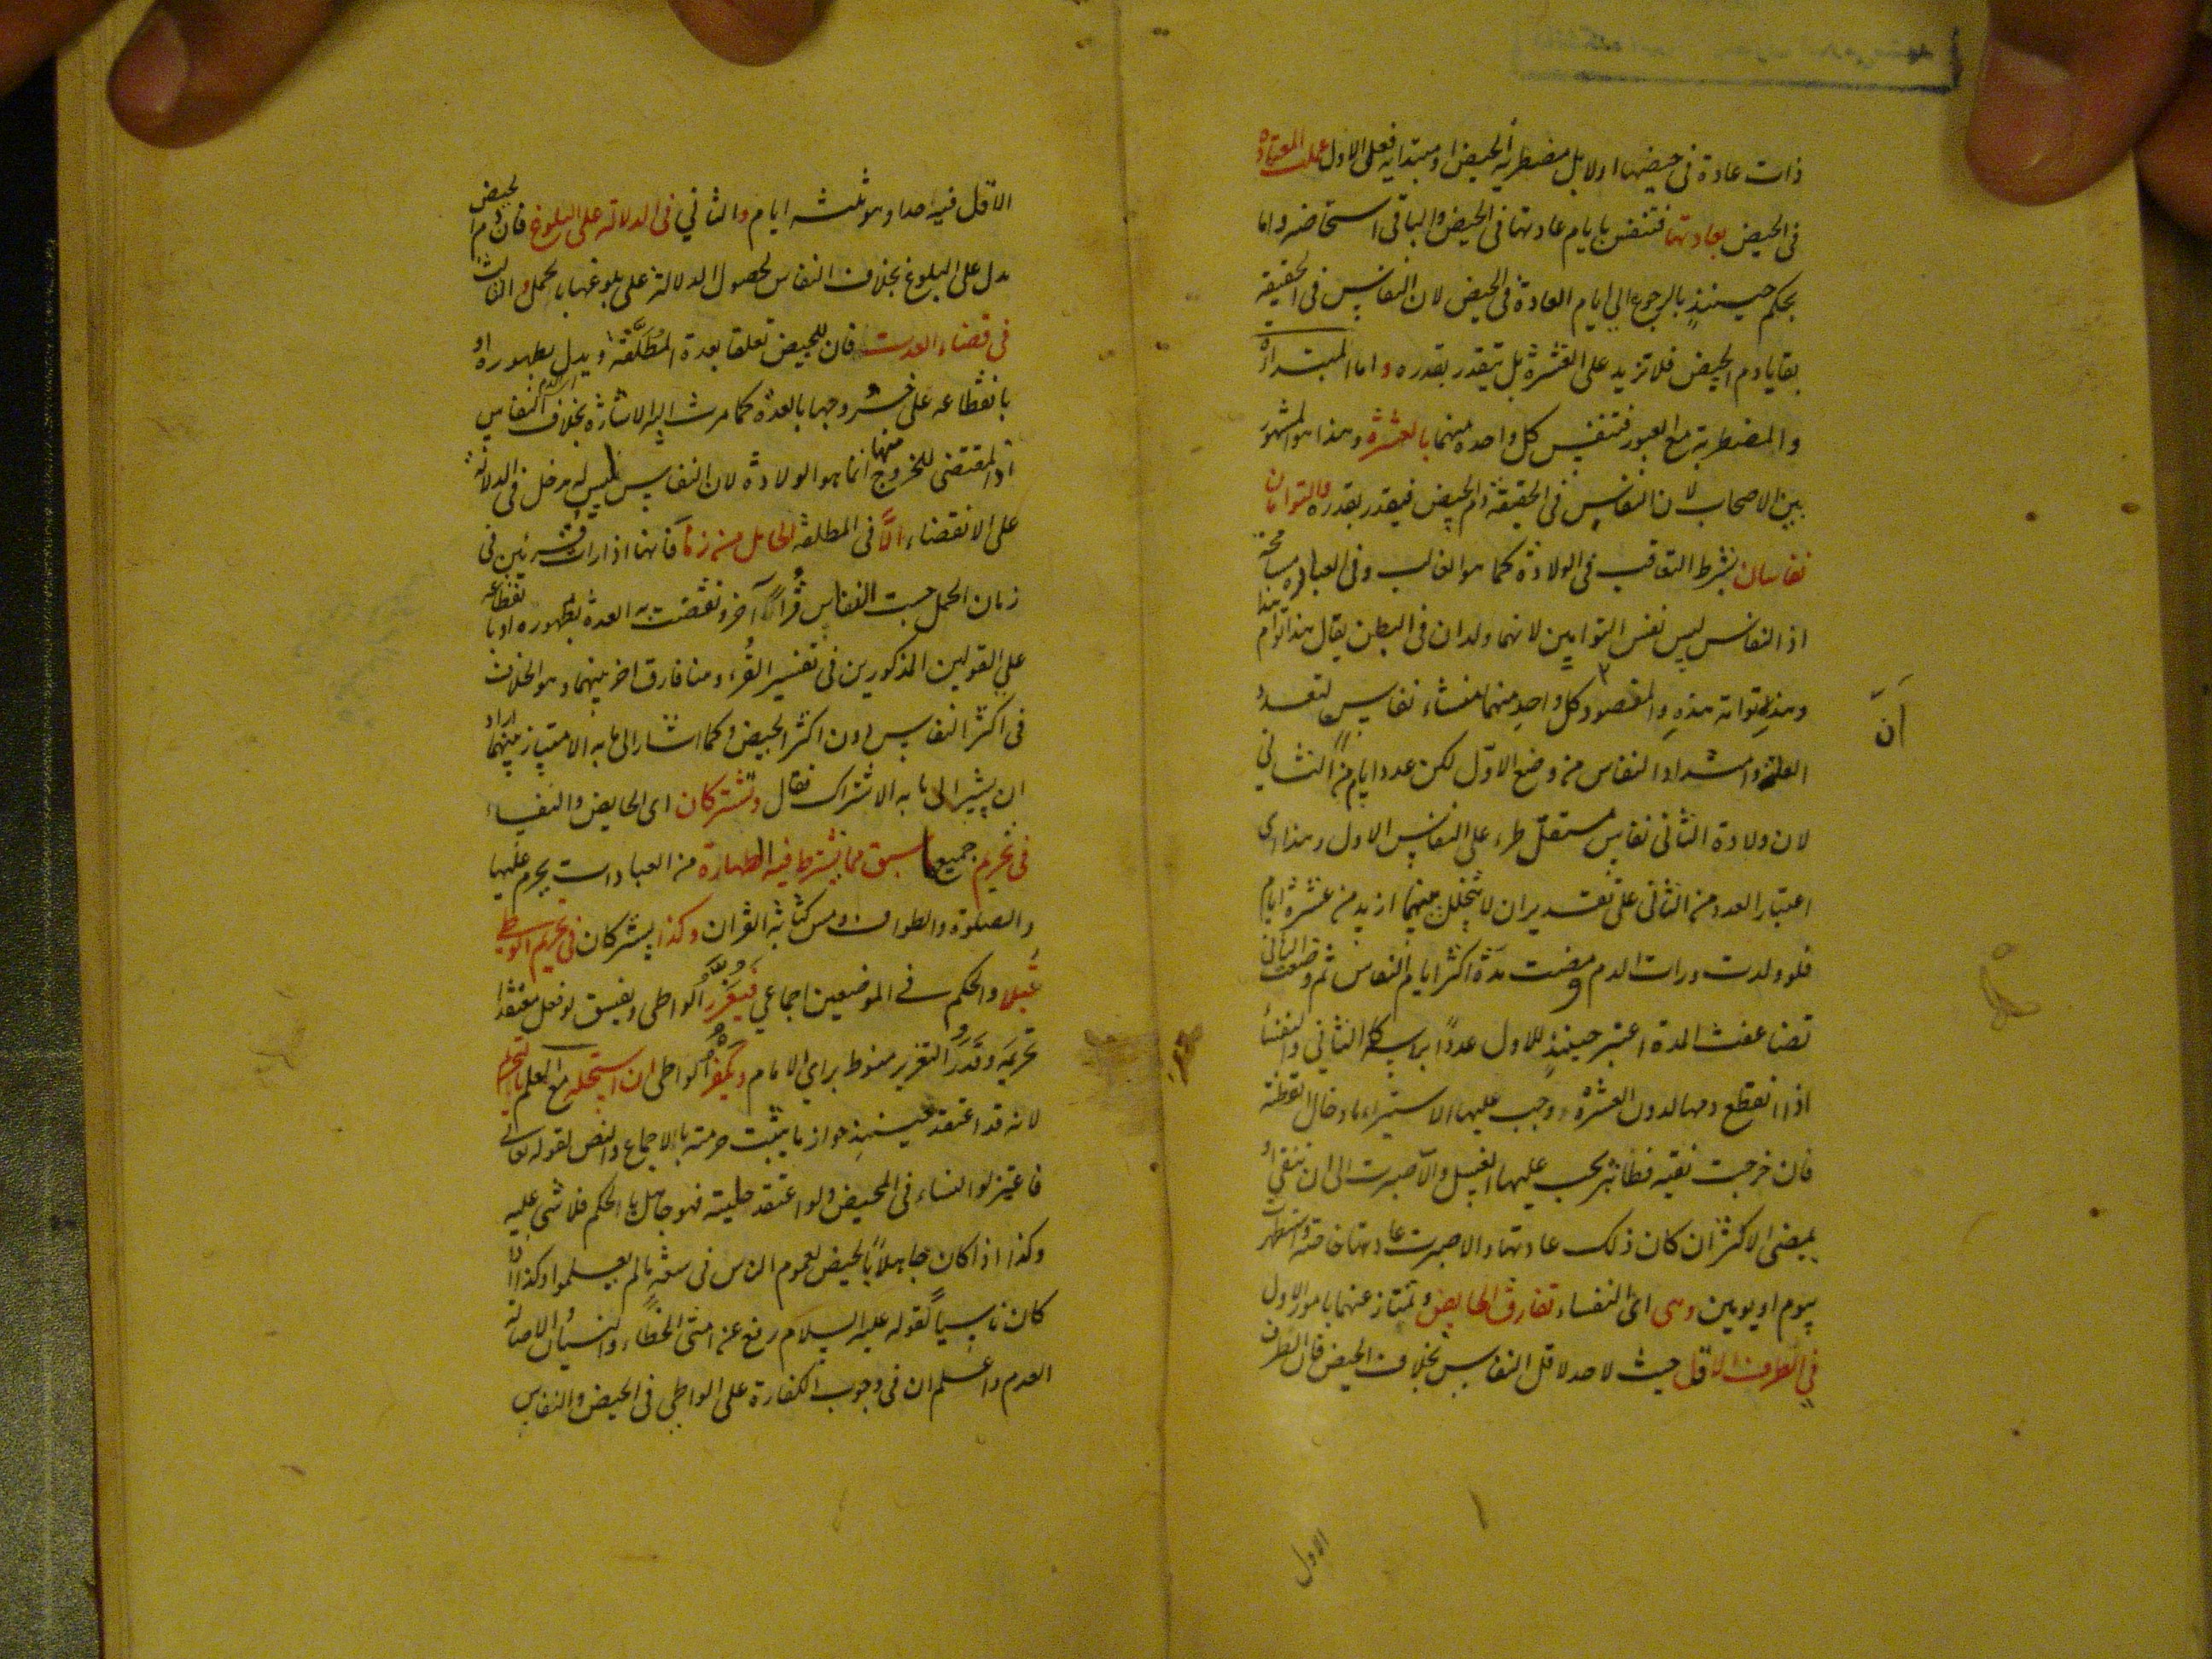 ذات عادة فى حيضها اولا بل مضطربة الحيض او مبتدأة فعلى الاول عملت المعتادة
فى الحيض بعادتها فتنفس بايام عادتها فى الحيض والباقى استحاضه واما
يحكم حينئذٍ بالرجوع الى ايام العادة فى الحيض لان النفاس فى الحقيقة
بقايا دم الحيض فلا تزيد على العشرة بل يتقدر بقدره واما المبتدأة
والمضطربة مع العبور فتنفس كل واحده منهما بالعشرة وهذا هو المشهور
بين الاصحاب لان النفاس فى الحقيقة دم الحيض فيقدر بقدره والتوامان
نفاسان بشرط التعاقب فى الولادة كما هو الغالب وفى العبارة مسامحة
اذ النفاس ليس نفس التوامين لانهما ولدان فى البطن يقال هذا توام هذا
وهذهِ توامة هذهِ والمقصود ان كل واحدٍ منهما منشاء نفاسٍ لتعدد
العلة وامتداد النفاس من وضع الاوّل لكن عدد ايام من الثانى
لان ولادة الثانى نفاس مستقلّ طرء على النفاس الاول وهذا اى
اعتبار العدد من الثانى على تقدير ان لا يتخلل بينهما ازيد من عشرة ايام
فلو ولدت ورات الدم ومضت مدّة اكثر ايام النفاس ثم وضعت الثانى
تضاعفت المدة اعتبر حينئذٍ للاول عددًا براسه كالثانى والنفساء
اذا انقطع دمها لدون العشرة وجب عليها الاستبراء بادخال القطنة
فان خرجت نقية فطاهر يجب عليها الغسل والّا صبرت الى ان تنقى او
يمضى الاكثر ان كان ذلك عادتها والا صبرت عادتها خاصّة واستظهرت
بيوم او يومين وهى اى النفساء تفارق الحايض وتمتاز عنها بامور الاول
فى الطرف الاقل حيث لا حد لاقل النفاس بخلاف الحيض فان الطرف
الاول
الاقل فيه احدا وهو ثلثه ايام والثانى فى الدلالة على البلوغ فان دم الحيض
يدل على البلوغ بخلاف النفاس لحصول الدلالة على بلوغها بالحمل والثالث
فى قضاء العدت فان للحيض تعلقا بعدة المُطلَّقة ويدل بظهوره او
بانقطاعه على خروجها بالعدة كما مرت اليه الاشارة بخلاف النفاس
اذ المقتضى للخروج منها انما هو الولادة لان النفاس ليس له مدخل فى الدلالة
على الانقضاء الَّا فى المطلقة الحامل من زنا فانها اذا رات قرئين فى
زمان الحمل حسبت النفاس قُرأً آخر ونقضت به العدة بظهوره او بانقطاعه
على القولين المذكورين فى تفسير القُرء وهنا فارق اخر بينهما وهو الخلاف
فى اكثر النفاس دون اكثر الحيض وكما اشار الى ما به الامتياز بينهما اراد
ان يشير الى ما به الاشتراك فقال وتشتركان اى الحايض والنفساء
فى تحريم جميع ما سبق مما يشترط فيه الطهارة من العبادات يحرم عليها
والصلوة والطواف ومس كتابة القران وكذا يشتركان فى تحريم الوطى
قُبلا والحكم فى الموضعين اجماعي فيُعَزَّرُ الواطى ويفسق لو فعل معتقدا
تحريمَه وقَدَرُ التعزير منوط براى الامام ويُكفَّرُ الواطى ان استحله مع العلم بالتحريم
لانه قد اعتقد حينئذٍ جواز ما يثبت حرمته بالاجماع والنص لقوله تعالى
فاعتزلوا النساء فى المحيض ولو اعتقد حليته فهو جاهل بالحكم فلا شى عليه
وكذا اذا كان جاهلًا بالحيض لعموم الناس فى سعةٍ مالم يعلموا وكذا اذا
كان ناسياً لقوله عليه السلام رفع عن امتى الخطاء والنسيان لاصالة
العدم واعلم ان فى وجوب الكفارة على الواطى فى الحيض والنفاس